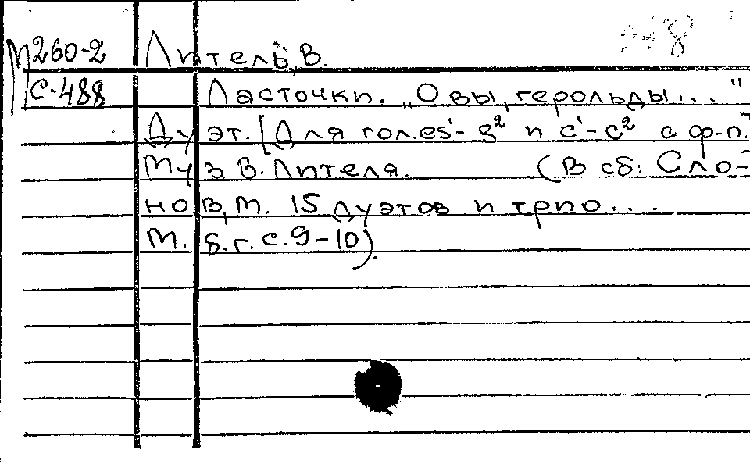 М260-2 Литель, В.
С-488 Ласточки. „О вы, герольды..."
Дуэт. [Для гол. es¹-g² и c¹-c² с ф-п.
Муз В. Лителя. (В сб: Сло-
нов, М. 15 дуэтов и трио...
М. б.г. с.9-10).